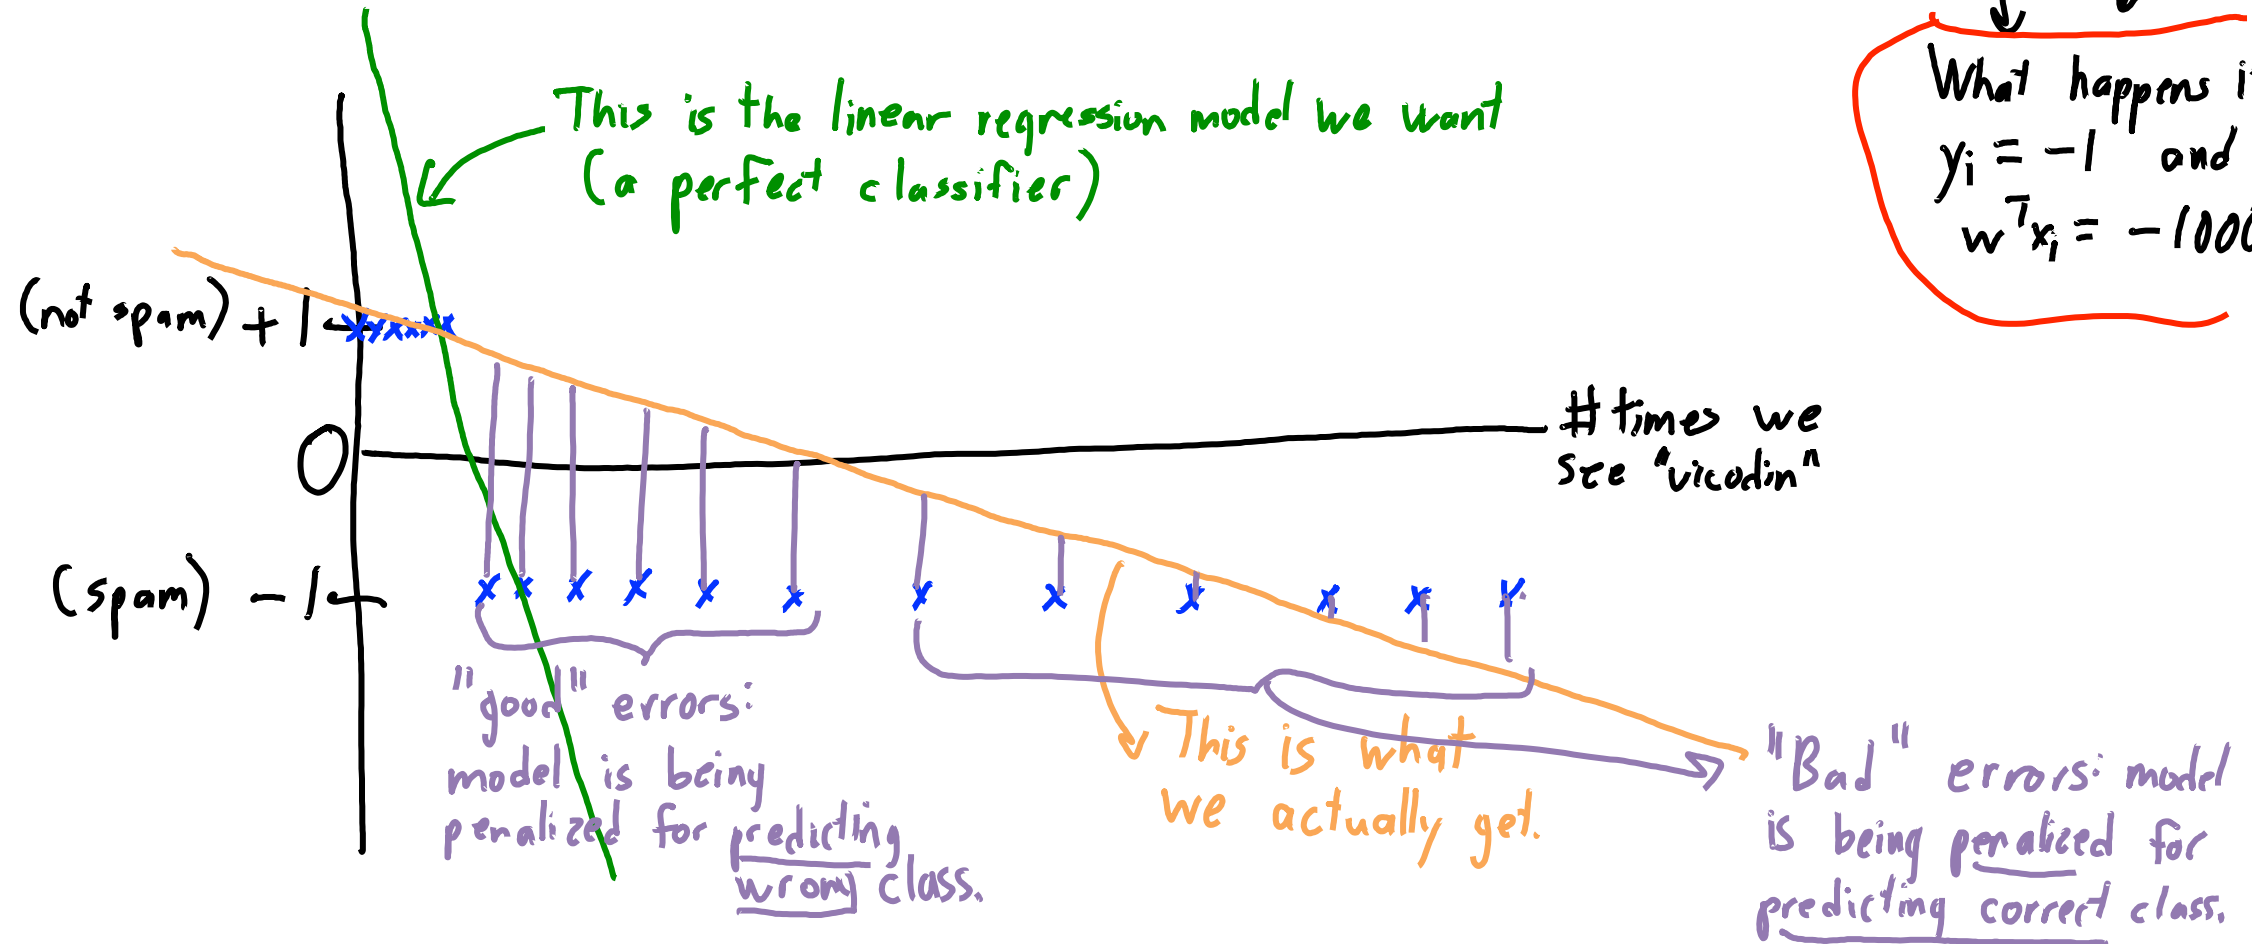 This is the linear regression model we want
(a perfect classifier)
What happens i
yi = -1 and
wᵀxi = -1000
(not spam) +1
0
(spam) -1
# times we
see "vicodin"
"good" errors:
model is being
penalized for predicting
wrong class.
This is what
we actually get.
"Bad" errors: model
is being penalized for
predicting correct class.